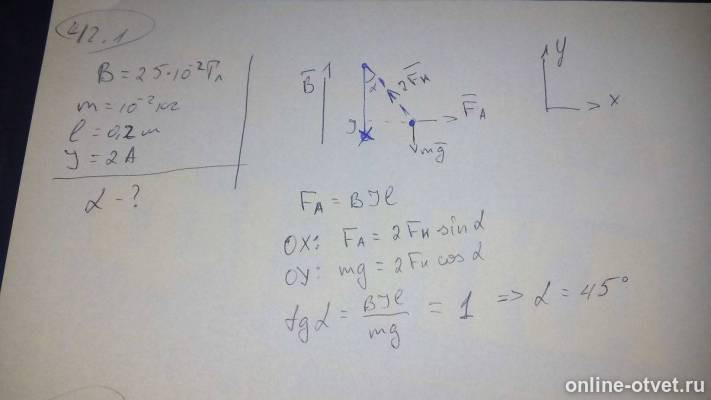 4/2.1
B = 25·10⁻² Тл
m = 10⁻² кг
l = 0,2 m
J = 2 A
α - ?
B
α
2Fн
J
FA
mg
y
x
FA = BJl
OX: FA = 2Fн sinα
OY: mg = 2Fн cosα
tgα = BJl/mg = 1 => α = 45°
online-otvet.ru